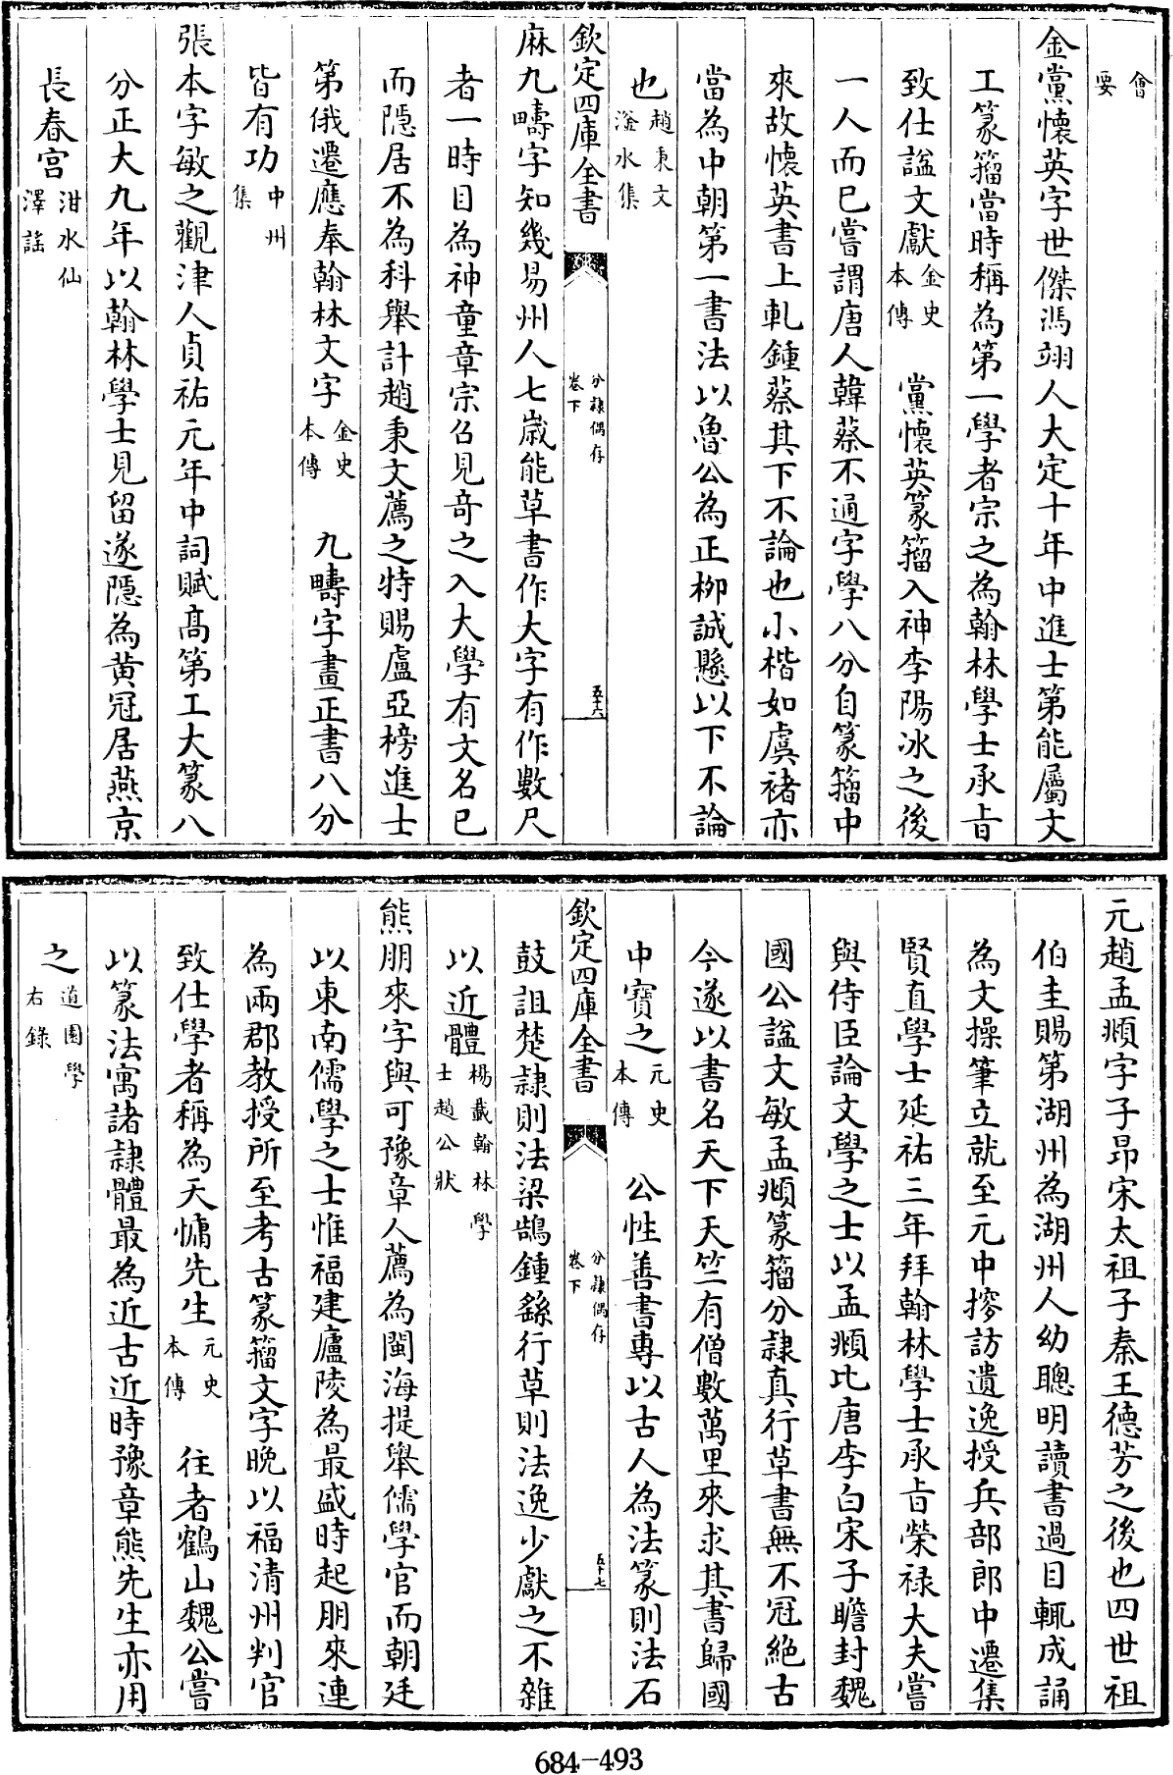 會要
金黨懷英字世傑馮翊人大定十年中進士第能屬文
工篆籀當時稱為第一學者宗之為翰林學士承旨
致仕諡文獻金史本傳　黨懷英篆籀入神李陽冰之後
一人而已嘗謂唐人韓蔡不通字學八分自篆籀中
來故懷英書上軋鍾蔡其下不論也小楷如虞褚亦
當為中朝第一書法以魯公為正柳誠懸以下不論
也趙秉文滏水集
欽定四庫全書　分隸偶存卷下　五十六
麻九疇字知幾易州人七歲能草書作大字有作數尺
者一時目為神童章宗召見奇之入大學有文名已
而隱居不為科舉計趙秉文薦之特賜盧亞榜進士
第俄遷應奉翰林文字金史本傳　九疇字畫正書八分
皆有功中州集
張本字敏之觀津人貞祐元年中詞賦高第工大篆八
分正大九年以翰林學士見留遂隱為黃冠居燕京
長春宮泔水仙澤謠
元趙孟頫字子昂宋太祖子秦王德芳之後也四世祖
伯圭賜第湖州為湖州人幼聰明讀書過目輒成誦
為文操筆立就至元中搜訪遺逸授兵部郎中遷集
賢直學士延祐三年拜翰林學士承旨榮祿大夫嘗
與侍臣論文學之士以孟頫比唐李白宋子瞻封魏
國公諡文敏孟頫篆籀分隸真行草書無不冠絕古
今遂以書名天下天竺有僧數萬里來求其書歸國
中寶之元史本傳　公性善書專以古人為法篆則法石
欽定四庫全書　分隸偶存卷下　五十七
鼓詛楚隸則法梁鵠鍾繇行草則法逸少獻之不雜
以近體楊載翰林學士趙公狀
熊朋來字與可豫章人薦為閩海提舉儒學官而朝廷
以東南儒學之士惟福建廬陵為最盛時起朋來連
為兩郡教授所至考古篆籀文字晚以福清州判官
致仕學者稱為天慵先生元史本傳　往者鶴山魏公嘗
以篆法寓諸隸體最為近古近時豫章熊先生亦用
之道園學古錄
684-493